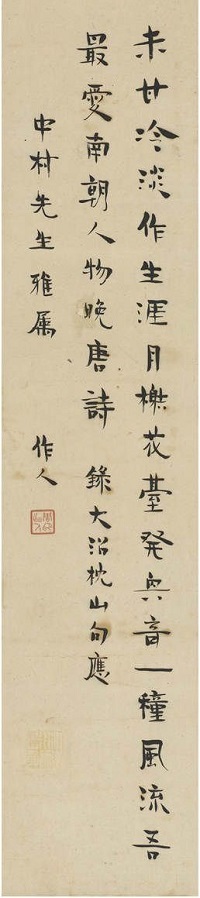 未甘冷淡作生涯月榭花臺發興奇一種風流吾
最愛南朝人物晚唐詩 錄大沼枕山句應
中村先生雅属 作人